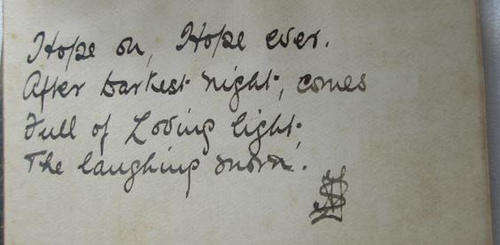 Hope on, Hope ever.
After darkest night, comes
Full of Loving light,
The laughing morn.